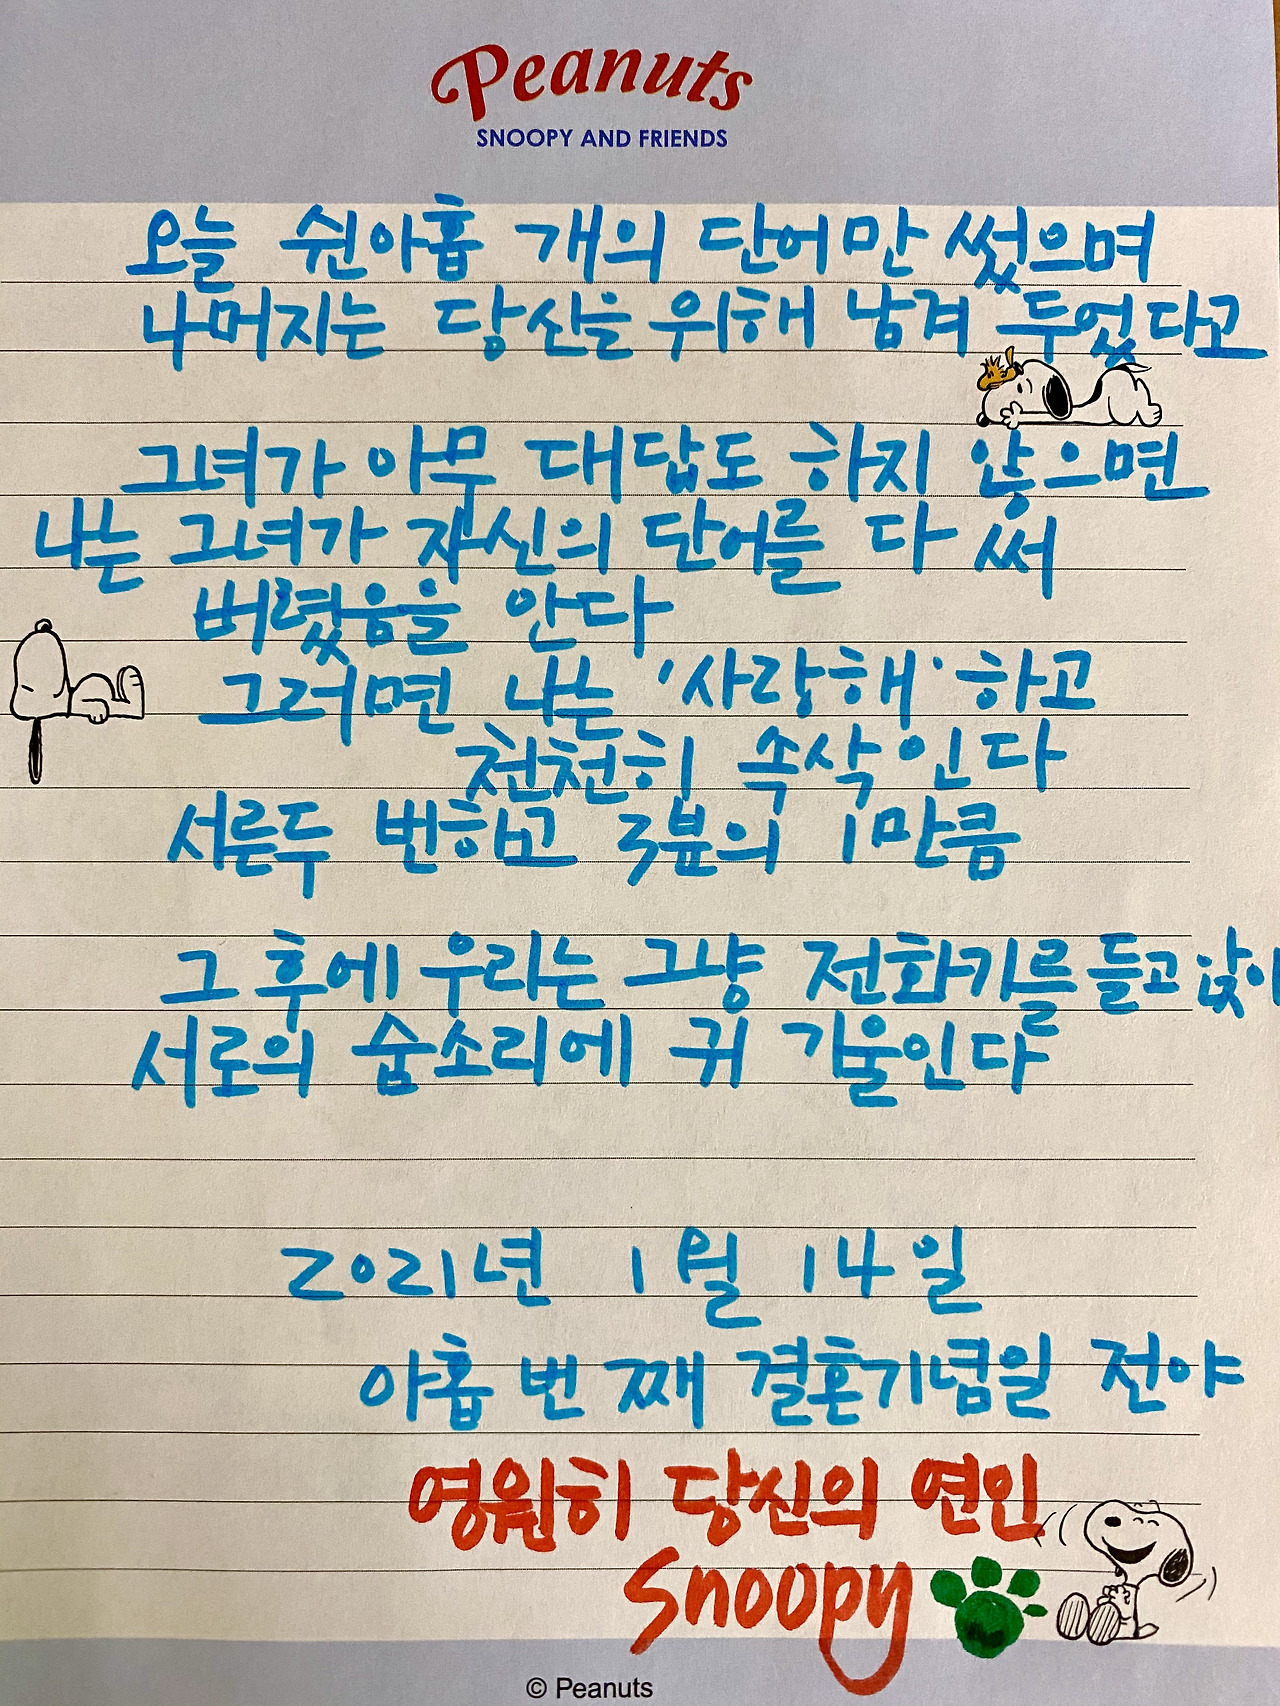 Peanuts
SNOOPY AND FRIENDS
오늘 쉰아홉 개의 단어만 썼으며
나머지는 당신을 위해 남겨 두었다고
그녀가 아무 대답도 하지 않으면
나는 그녀가 자신의 단어를 다 써
버렸음을 안다
그러면 나는 '사랑해' 하고
천천히 속삭인다
서른두 번하고 3분의 1만큼
그 후에 우리는 그냥 전화기를 들고 앉아
서로의 숨소리에 귀 기울인다
2021년 1월 14일
아홉 번째 결혼기념일 전야
영원히 당신의 연인
Snoopy
© Peanuts